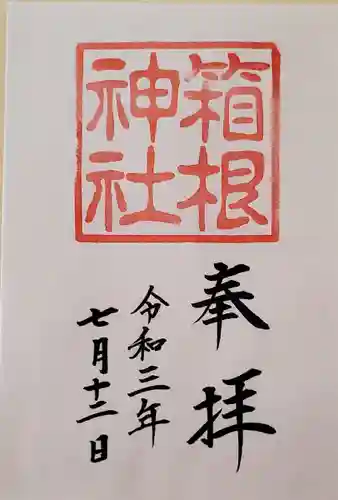 箱根
神社
奉拝
令和三年
七月十二日